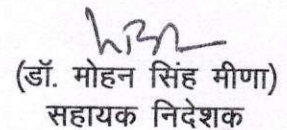 (डॉ. मोहन सिंह मीणा)
सहायक निदेशक